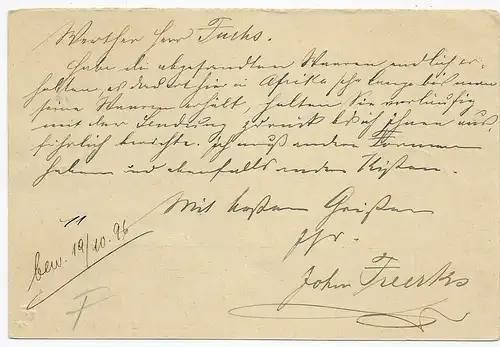 Werther Herr Fuchs.
Habe die abgesandten Waaren endlich er-
halten, es dauert hier in Afrika sehr lange bis man
seine Waaren erhält, halten Sie vorläufig
mit der Sendung zurück bis ich Ihnen aus-
führlich berichte. Ich muß andere Formen
haben und ebenfalls andere Kisten.
Mit besten Grüßen
Ihr.
John Freerks
bew. 19/10. 96
F